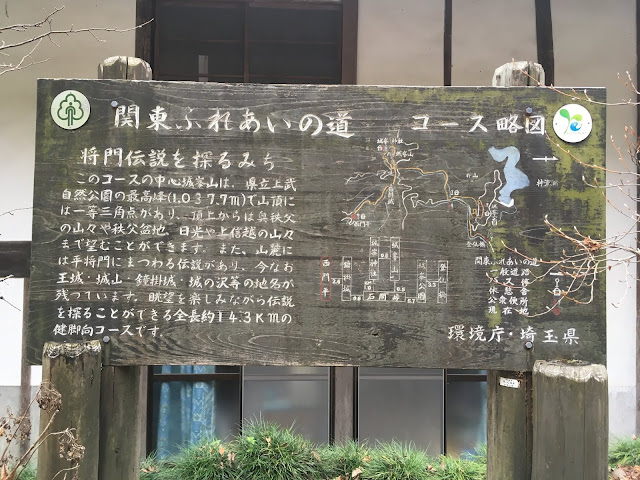 関東ふれあいの道 コース略図
将門伝説を探るみち
このコースの中心城峯山は、県立上武
自然公園の最高峰(1.037.7m)で山頂に
は一等三角点があり、頂上からは奥秩父
の山々や秩父盆地、日光や上信越の山々
まで望むことができます。また、山麓に
は平将門にまつわる伝説があり、今なお
王城・城山・鐘掛城・城の沢等の地名が
残っています。眺望を楽しみながら伝説
を探ることができる全長約14.3Kmの
健脚向コースです。
城峯神社
城峯山
石間峠
関東ふれあいの道
一般道路
バス停
休憩所
公衆便所
現在地
環境庁・埼玉県